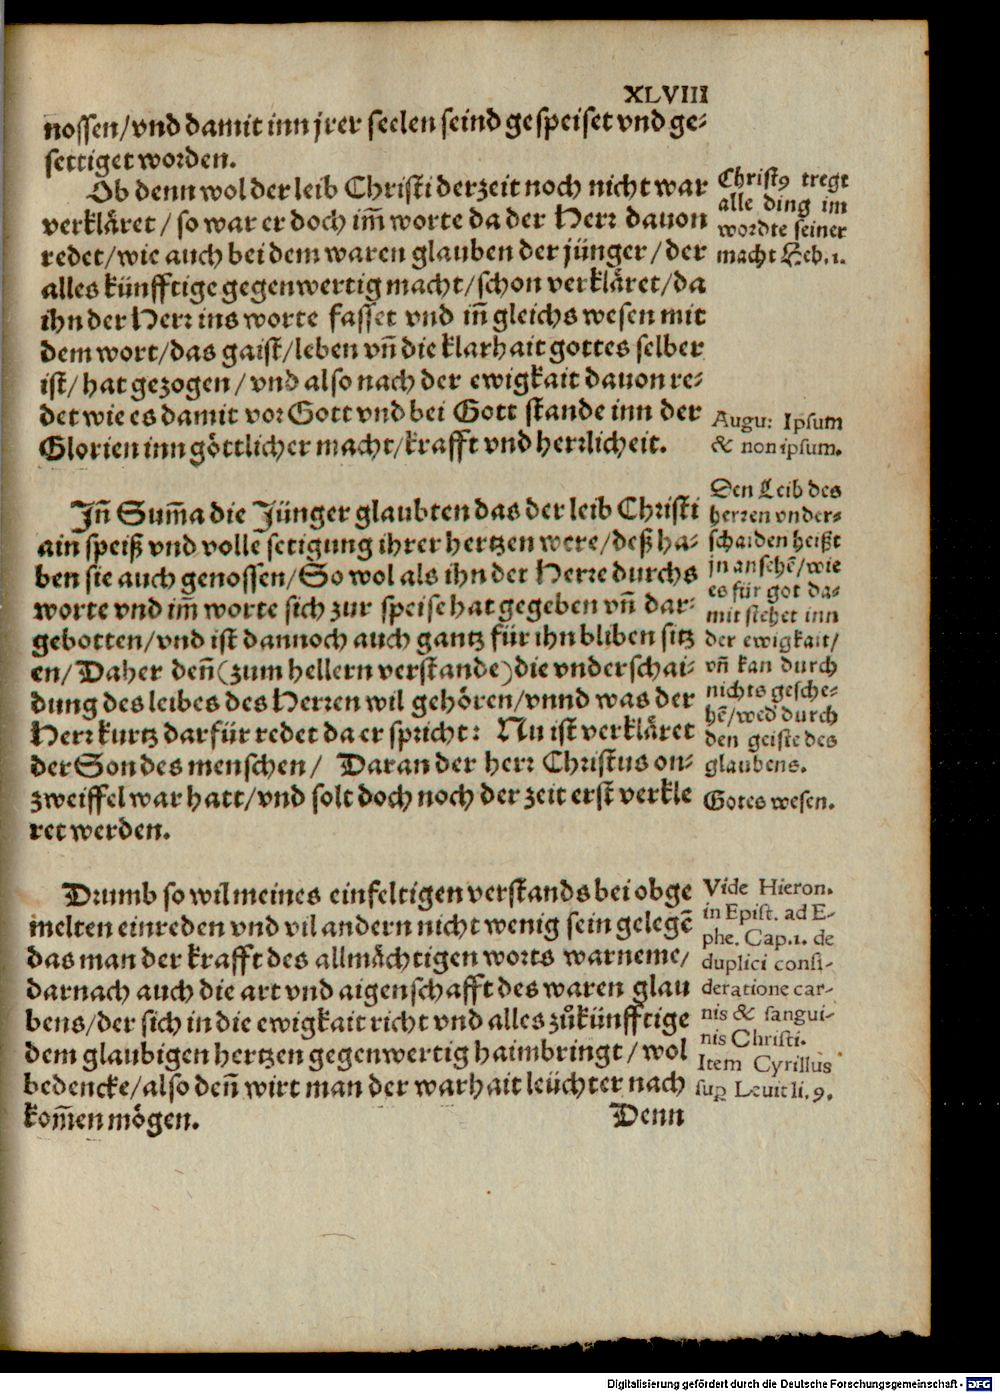 XLVIII
nossen/vnd damit inn jrer seelen seind gespeiset vnd ge-
settiget worden.
Ob denn wol der leib Christi derzeit noch nicht war
verkläret / so war er doch im̃ worte da der Herr dauon
redet/wie auch bei dem waren glauben der jünger / der
alles künfftige gegenwertig macht/schon verkläret/da
ihn der Herr ins worte fasset vnd iñ gleichs wesen mit
dem wort/das gaist/leben vñ die klarhait gottes selber
ist/ hat gezogen / vnd also nach der ewigkait dauon re-
det wie es damit vor Gott vnd bei Gott stande inn der
Glorien inn göttlicher macht/krafft vnd herrlicheit.
Christꝰ tregt
alle ding im
wordte seiner
macht Heb. 1.
Augu: Ipsum
& non ipsum.
Jñ Sum̃a die Jünger glaubten das der leib Christi
ain speiß vnd volle setigung ihrer hertzen were/deß ha-
ben sie auch genossen/So wol als ihn der Herre durchs
worte vnd im̃ worte sich zur speise hat gegeben vñ dar-
gebotten/vnd ist dannoch auch gantz für ihn bliben sitz
en/ Daher deñ (zum hellern verstande) die vnderschai-
dung des leibes des Herren wil gehören/vnnd was der
Herr kurtz darfür redet da er spricht: Nu ist verkläret
der Son des menschen/ Daran der herr Christus on-
zweiffel war hatt/vnd solt doch noch der zeit erst verkle
ret werden.
Den Leib des
herren vnder-
schaiden heißt
jn ansehē/wie
es für got da-
mit stehet inn
der ewigkait/
vñ kan durch
nichts gesche-
hē/wed durch
den geiste des
glaubens.
Gotes wesen.
Drumb so wil meines einfeltigen verstands bei obge
melten einreden vnd vil andern nicht wenig sein gelegē
das man der krafft des allmächtigen worts warneme/
darnach auch die art vnd aigenschafft des waren glau
bens/der sich in die ewigkait richt vnd alles zůkünfftige
dem glaubigen hertzen gegenwertig haimbringt / wol
bedencke/also deñ wirt man der warhait leüchter nach
kom̃en mögen.
Denn
Vide Hieron.
in Epist. ad E-
phe. Cap. 1. de
duplici consi-
deratione car-
nis & sangui-
nis Christi.
Item Cyrillus
suꝑ Leuit li. 9.
Digitalisierung gefördert durch die Deutsche Forschungsgemeinschaft - DFG